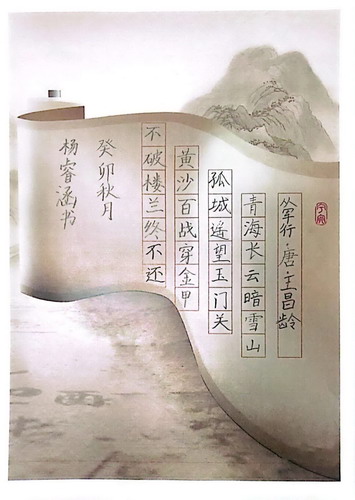 从军行·唐·王昌龄
青海长云暗雪山
孤城遥望玉门关
黄沙百战穿金甲
不破楼兰终不还
癸卯秋月
杨睿涵书